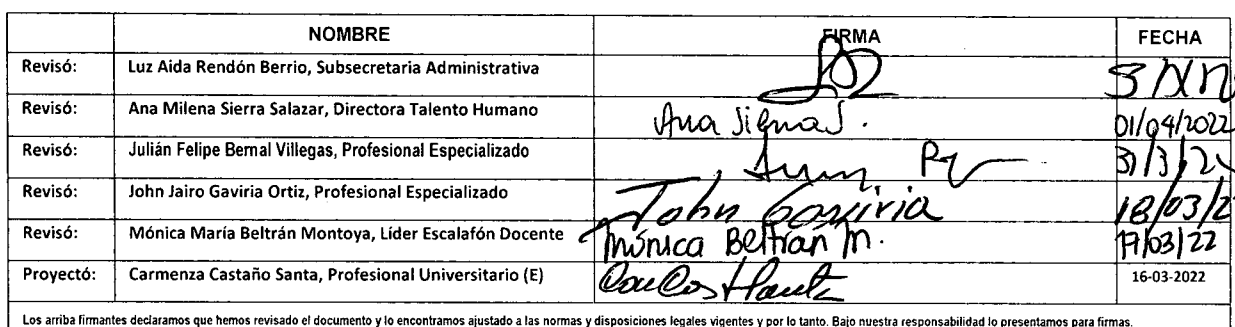 NOMBRE FIRMA FECHA
Revisó: Luz Aida Rendón Berrio, Subsecretaria Administrativa
Revisó: Ana Milena Sierra Salazar, Directora Talento Humano Ana Sierra S. 01/04/2022
Revisó: Julián Felipe Bernal Villegas, Profesional Especializado 31/3/2
Revisó: John Jairo Gaviria Ortiz, Profesional Especializado John Gaviria 18/03/2
Revisó: Mónica María Beltrán Montoya, Líder Escalafón Docente Mónica Beltrán M. 17/03/22
Proyectó: Carmenza Castaño Santa, Profesional Universitario (E) 16-03-2022
Los arriba firmantes declaramos que hemos revisado el documento y lo encontramos ajustado a las normas y disposiciones legales vigentes y por lo tanto. Bajo nuestra responsabilidad lo presentamos para firmas.